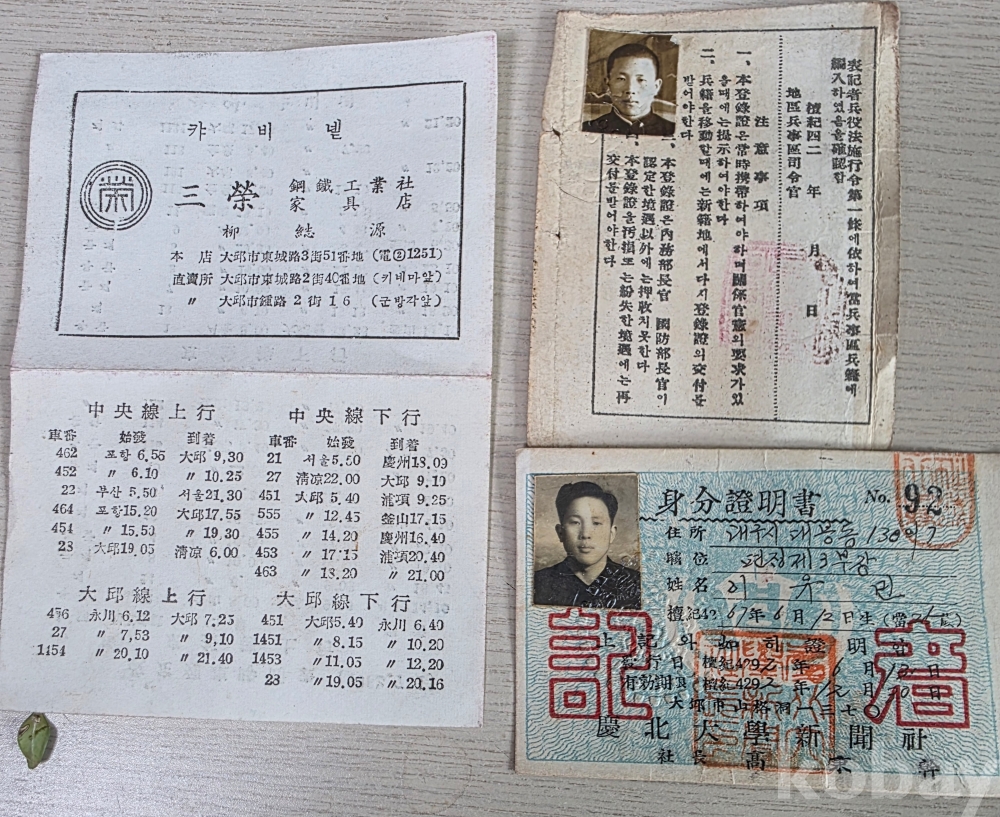 캬비넽
三榮 鋼鐵工業社
家具店
柳 源
本店 大邱市東城路3街51番地 (電②1251)
直賣所 大邱市東城路2街40番地 (키네마앞)
〃 大邱市鍾路2街16 (군방각앞)
中央線上行
車番 始發 到着
462 포항 6.55 大邱 9.30
452 〃 6.10 〃 10.25
22 부산 5.50 서울 21.30
464 포항 15.20 大邱 17.55
454 〃 15.50 〃 19.30
28 大邱 19.05 清凉 6.00
中央線下行
車番 始發 到着
21 서울 5.50 慶州 18.09
27 清凉 22.00 大邱 9.10
451 大邱 5.40 浦項 9.25
555 〃 12.45 釜山 17.15
455 〃 14.20 慶州 16.40
453 〃 17.15 浦項 20.40
463 〃 18.20 〃 21.00
大邱線上行
456 永川 6.12 大邱 7.25
27 〃 7.53 〃 9.10
1454 〃 20.10 〃 21.40
大邱線下行
451 大邱 5.40 永川 6.40
1451 〃 8.15 〃 10.20
1453 〃 11.05 〃 12.20
23 〃 19.05 〃 20.16
表記者兵役法施行令第一條에依하여當兵事區兵籍에
編入하였음을確認함
檀紀四二 年 月 日
地區兵事區司令官
注意事項
一、本登錄證은常時携帶하여야하며關係官憲의要求가있
을때에는提示하여야한다
二、兵籍을移動할때에는新籍地에서다시登錄證의交付를
받어야한다
本登錄證은內務部長官 國防部長官이
認定한境遇以外에는押收치못한다
本登錄證을汚損또는紛失한境遇에는再
交付를받어야한다
身分證明書 No. 92
住所
職位 편정제3부장
姓名 이 우
檀紀 67年6月12日生
上記와如히證明
發行日 檀紀429 年 6月 日
有効期 檀紀429 年 12月 日
大邱市山格洞一三七〇
記者
慶北大學新聞社
社長 高
kobay